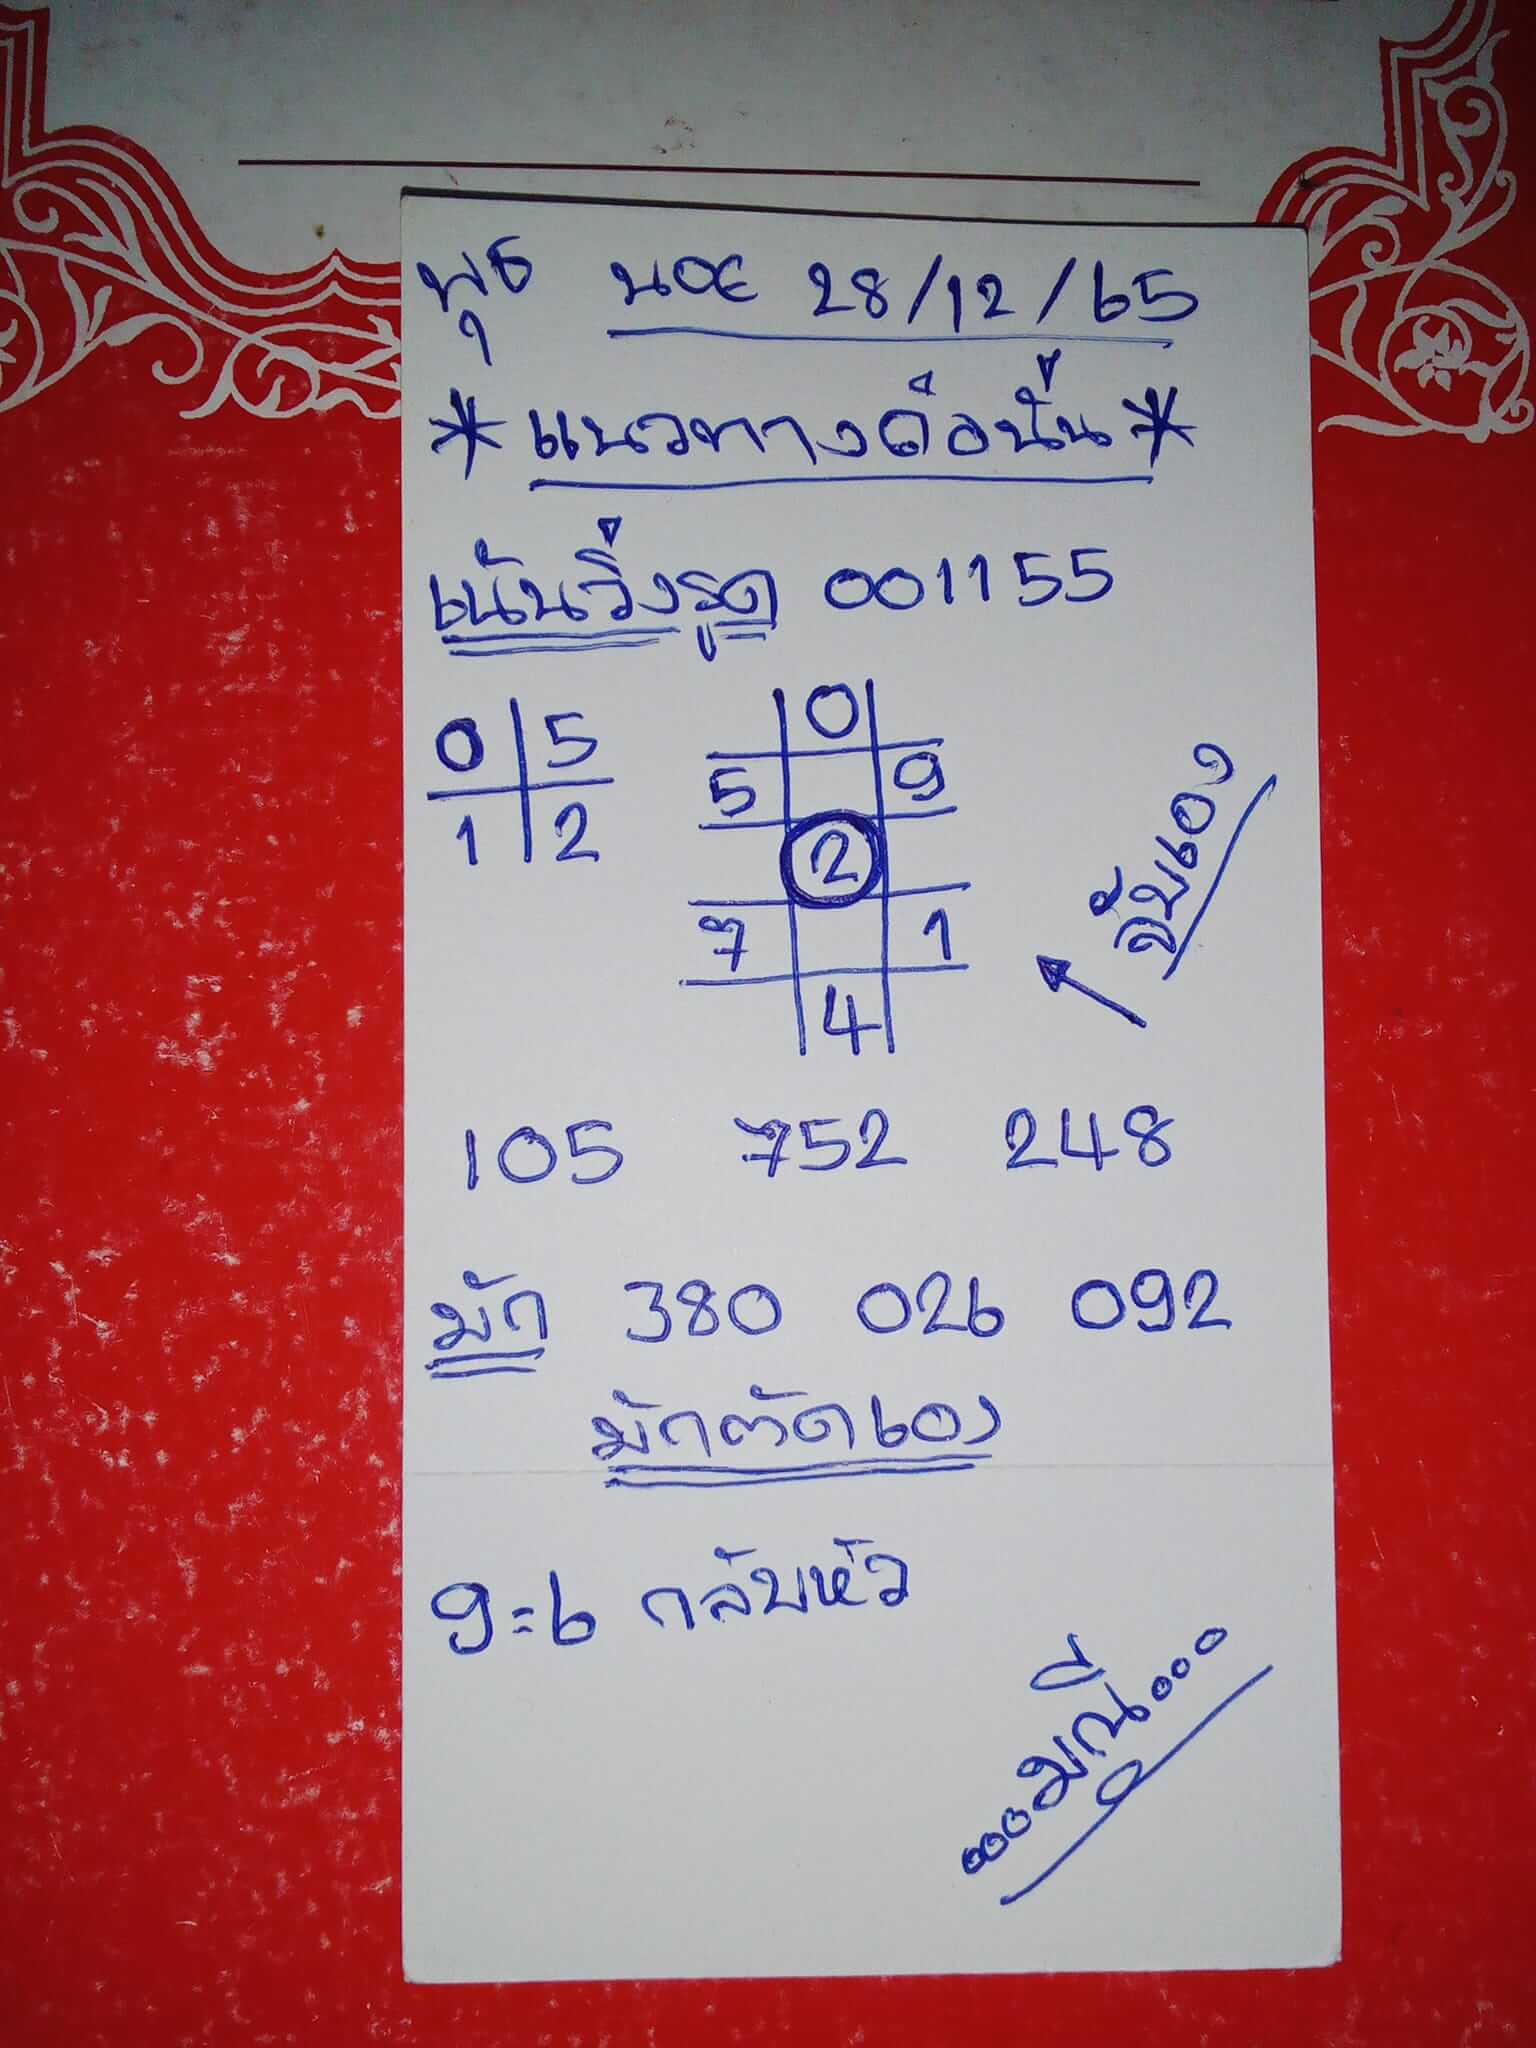 พุธ นอย 28/12/65
*แนวทางดอนั้น*
เน้นวิ่งรูด 001155
0 5
1 2
0
5 9
2
7 1
4
จับเอง
105 752 248
มัก 380 026 092
มักตัดเอง
9=6 กลับหัว
...มณี...